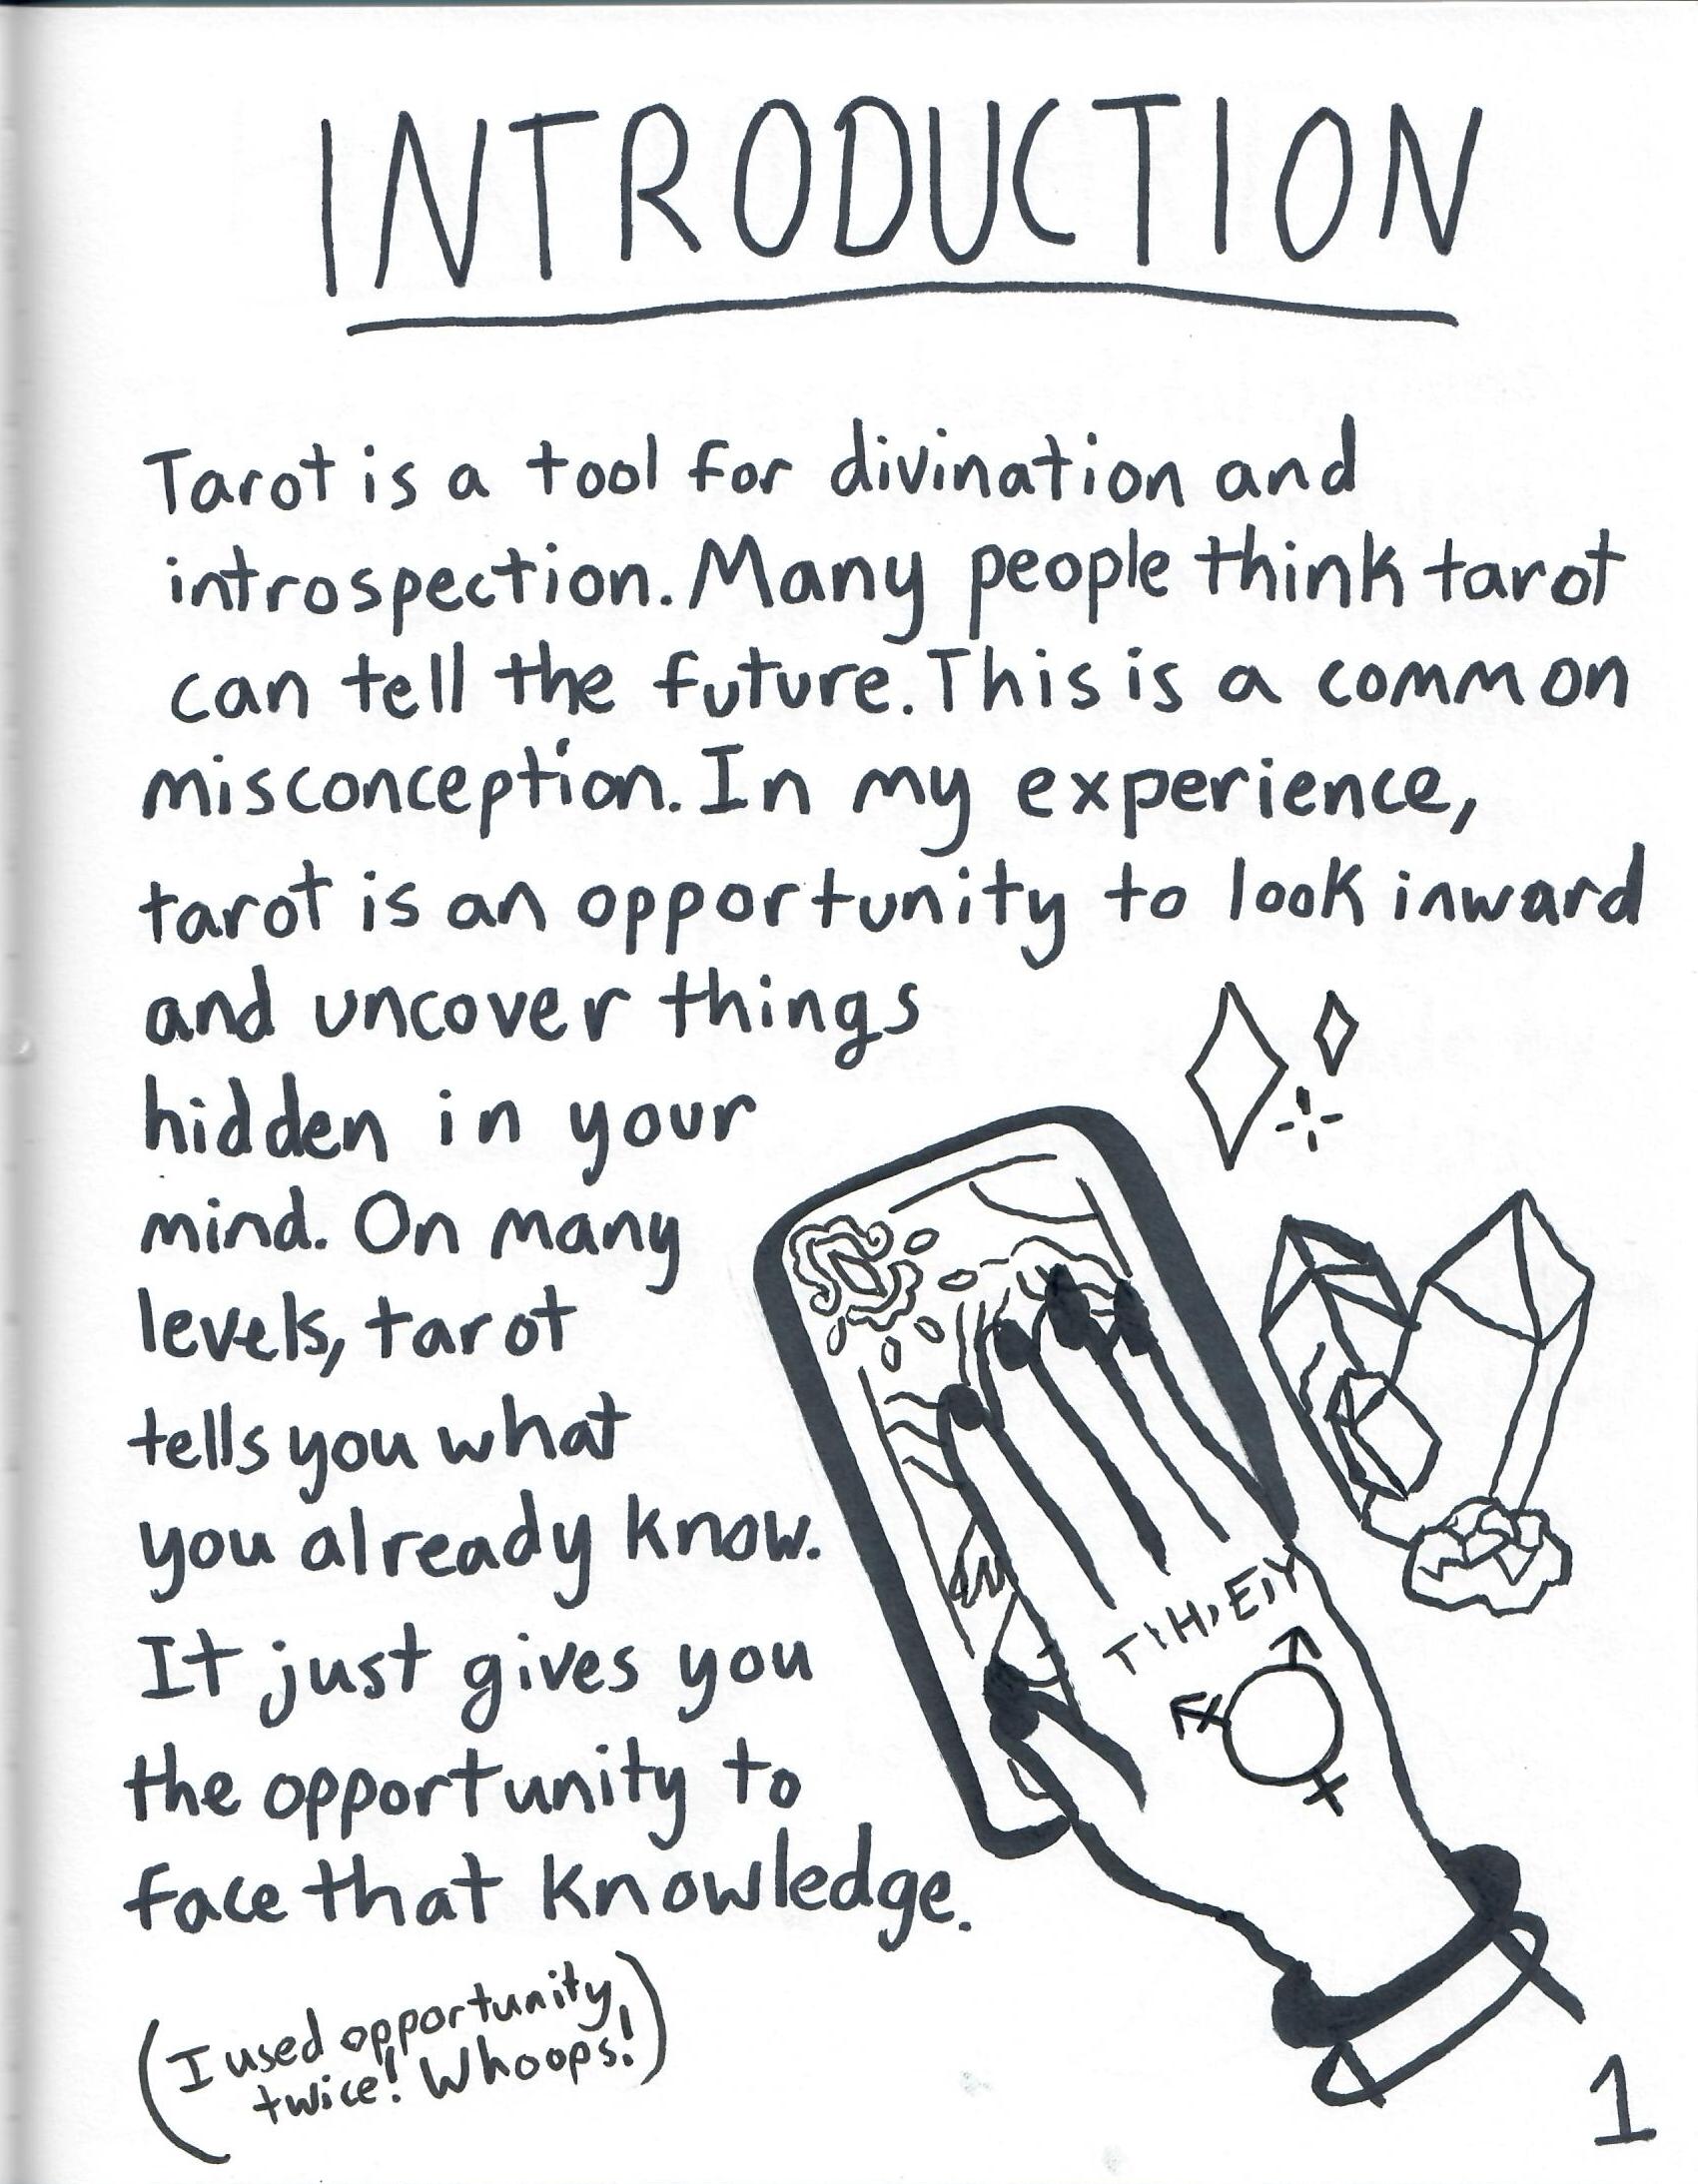 INTRODUCTION
Tarot is a tool for divination and
introspection. Many people think tarot
can tell the future. This is a common
misconception. In my experience,
tarot is an opportunity to look inward
and uncover things
hidden in your
mind. On many
levels, tarot
tells you what
you already know.
It just gives you
the opportunity to
face that knowledge.
(I used opportunity
twice! Whoops!)
THEY
1